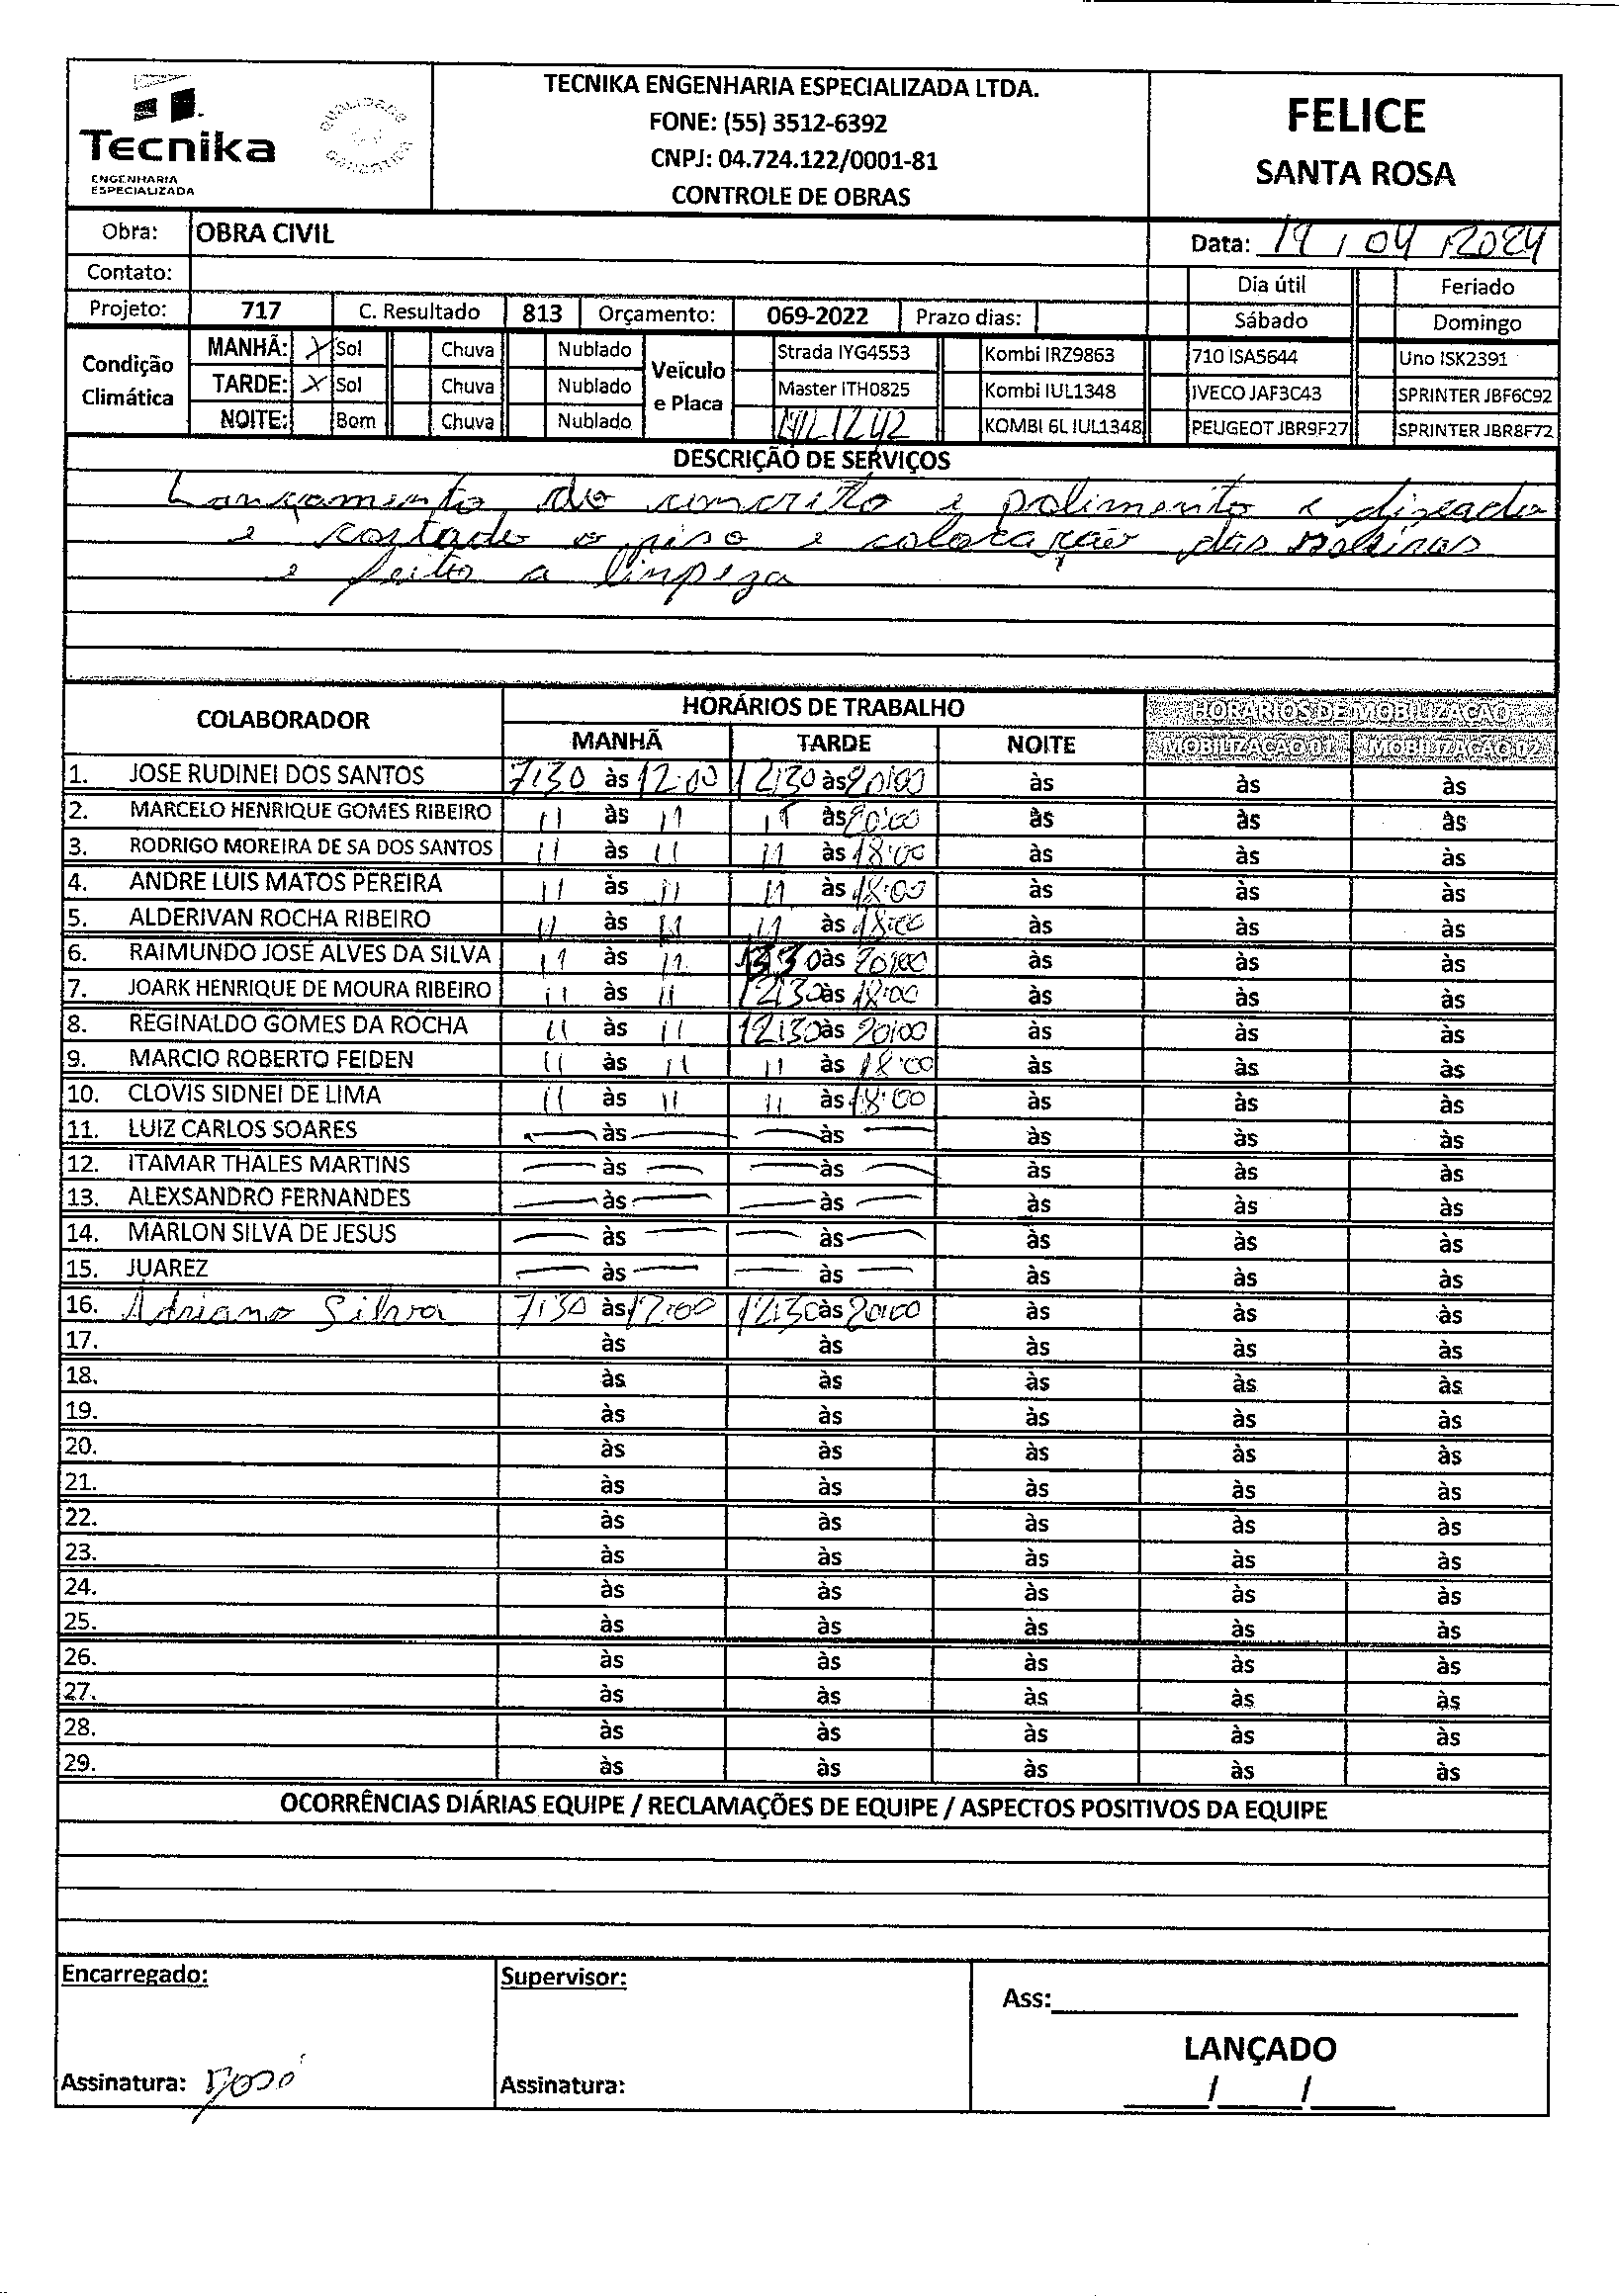 Tecnika
ENGENHARIA
ESPECIALIZADA
QUALIDADE
GARANTIDA
TECNIKA ENGENHARIA ESPECIALIZADA LTDA.
FONE: (55) 3512-6392
CNPJ: 04.724.122/0001-81
CONTROLE DE OBRAS
FELICE
SANTA ROSA
Obra: OBRA CIVIL
Data: 19/04/2024
Contato:
Dia útil Feriado
Projeto: 717 C. Resultado 813 Orçamento: 069-2022 Prazo dias: Sábado Domingo
Condição Climática
MANHÃ: X Sol Chuva Nublado
TARDE: X Sol Chuva Nublado
NOITE: Bom Chuva Nublado
Veículo e Placa
Strada IYG4553 Kombi IRZ9863 710 ISA5644 Uno ISK2391
Master ITH0825 Kombi IUL1348 IVECO JAF3C43 SPRINTER JBF6C92
KOMBI 6L IUL1348 PEUGEOT JBR9F27 SPRINTER JBR8F72
DESCRIÇÃO DE SERVIÇOS
Lançamento do concrito e polimento e
e cortado o piso e colocação das
e feito a limpeza
COLABORADOR HORÁRIOS DE TRABALHO HORÁRIOS DE MOBILIZAÇÃO
MANHÃ TARDE NOITE MOBILIZAÇÃO 01 MOBILIZAÇÃO 02
1. JOSE RUDINEI DOS SANTOS 7:30 às 12:00 12:30 às 20:00 às às às
2. MARCELO HENRIQUE GOMES RIBEIRO 11 às 11 11 às 20:00 às às às
3. RODRIGO MOREIRA DE SA DOS SANTOS 11 às 11 11 às 18:00 às às às
4. ANDRE LUIS MATOS PEREIRA 11 às 11 11 às 18:00 às às às
5. ALDERIVAN ROCHA RIBEIRO 11 às 11 11 às 18:00 às às às
6. RAIMUNDO JOSÉ ALVES DA SILVA 11 às 11 13:30 às 20:00 às às às
7. JOARK HENRIQUE DE MOURA RIBEIRO 11 às 11 12:30 às 18:00 às às às
8. REGINALDO GOMES DA ROCHA 11 às 11 12:30 às 20:00 às às às
9. MARCIO ROBERTO FEIDEN 11 às 11 11 às 18:00 às às às
10. CLOVIS SIDNEI DE LIMA 11 às 11 11 às 18:00 às às às
11. LUIZ CARLOS SOARES — às — — às — às às às
12. ITAMAR THALES MARTINS — às — — às — às às às
13. ALEXSANDRO FERNANDES — às — — às — às às às
14. MARLON SILVA DE JESUS — às — — às — às às às
15. JUAREZ — às — — às — às às às
16. Adriano Silva 7:30 às 12:00 12:30 às 20:00 às às às
17. às às às às às
18. às às às às às
19. às às às às às
20. às às às às às
21. às às às às às
22. às às às às às
23. às às às às às
24. às às às às às
25. às às às às às
26. às às às às às
27. às às às às às
28. às às às às às
29. às às às às às
OCORRÊNCIAS DIÁRIAS EQUIPE / RECLAMAÇÕES DE EQUIPE / ASPECTOS POSITIVOS DA EQUIPE
Encarregado: Supervisor:
Ass:
LANÇADO
Assinatura: Assinatura: / /